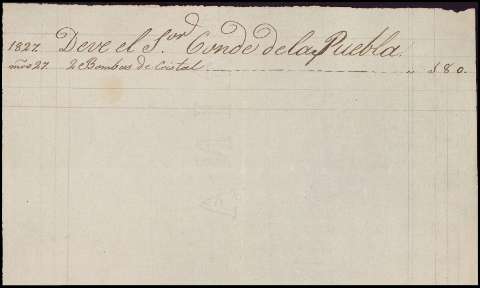 1827. Deve el S.or Conde de la Puebla.
27. 2 Bombas de Cristal $ 8 0.